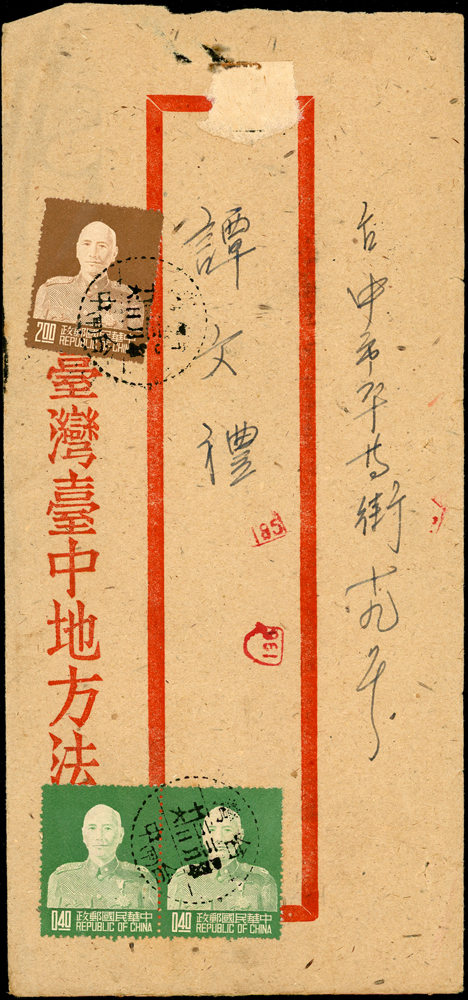 台中市平等街十九号
譚文禮
185
196
臺灣臺中地方法
2.00
政郵國民華中
REPUBLIC OF CHINA
0.40
政郵國民華中
REPUBLIC OF CHINA
0.40
政郵國民華中
REPUBLIC OF CHINA